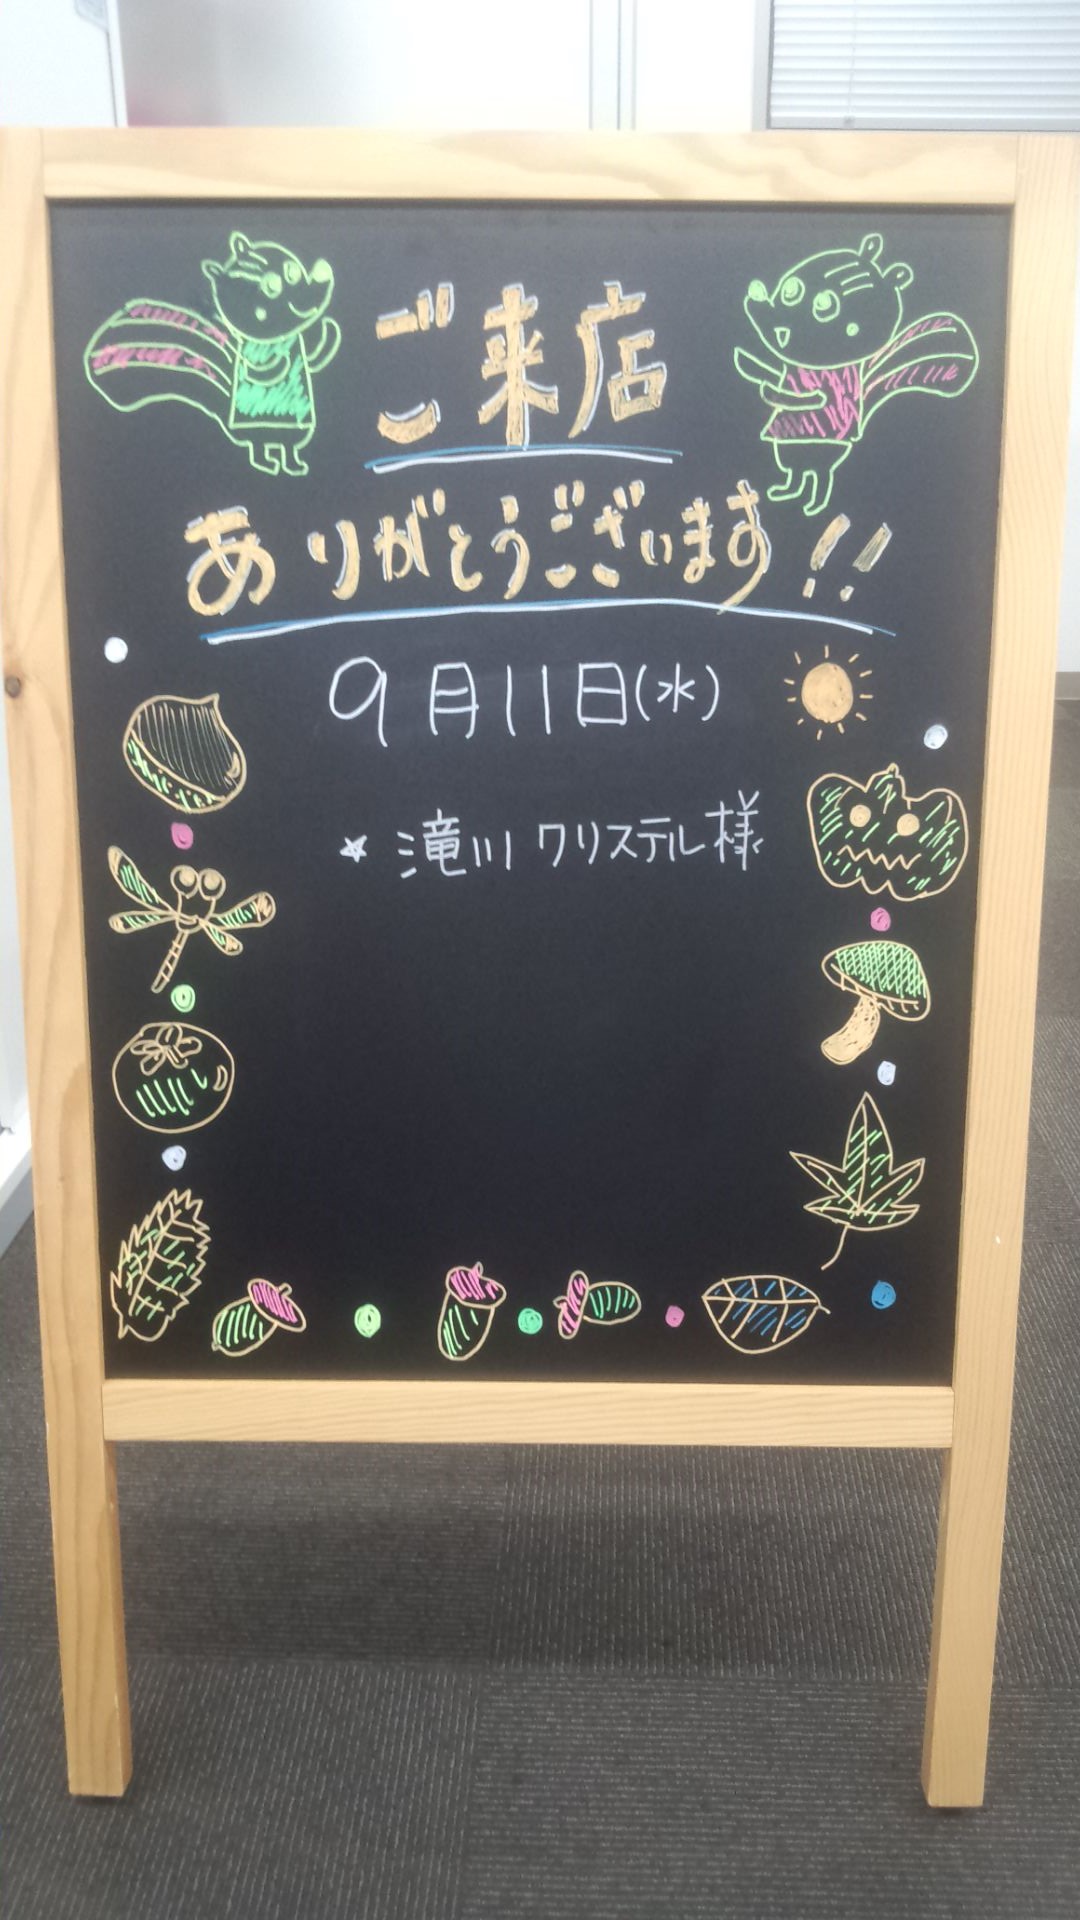 ご来店
ありがとうございます!!
9月11日(水)
* 滝川クリステル様